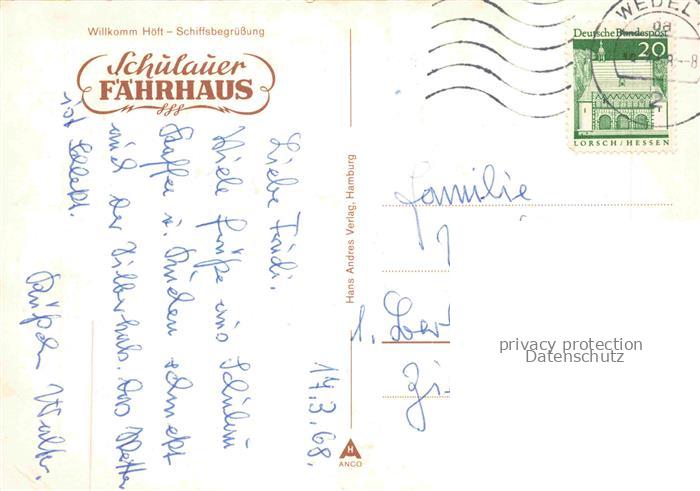 Willkomm Höft – Schiffsbegrüßung
Schulauer
FÄHRHAUS
14.3.68.
Liebe Trudi.
Viele Grüße aus Schulau
Kaffee u. Kuchen schmeckt
und der Silberhals. Das Wetter
ist schlecht.
Grüßchen Walter.
Hans Andres Verlag, Hamburg
ANCO
WEDEL
Deutsche Bundespost
20
LORSCH/HESSEN
Familie
1.
privacy protection
Datenschutz